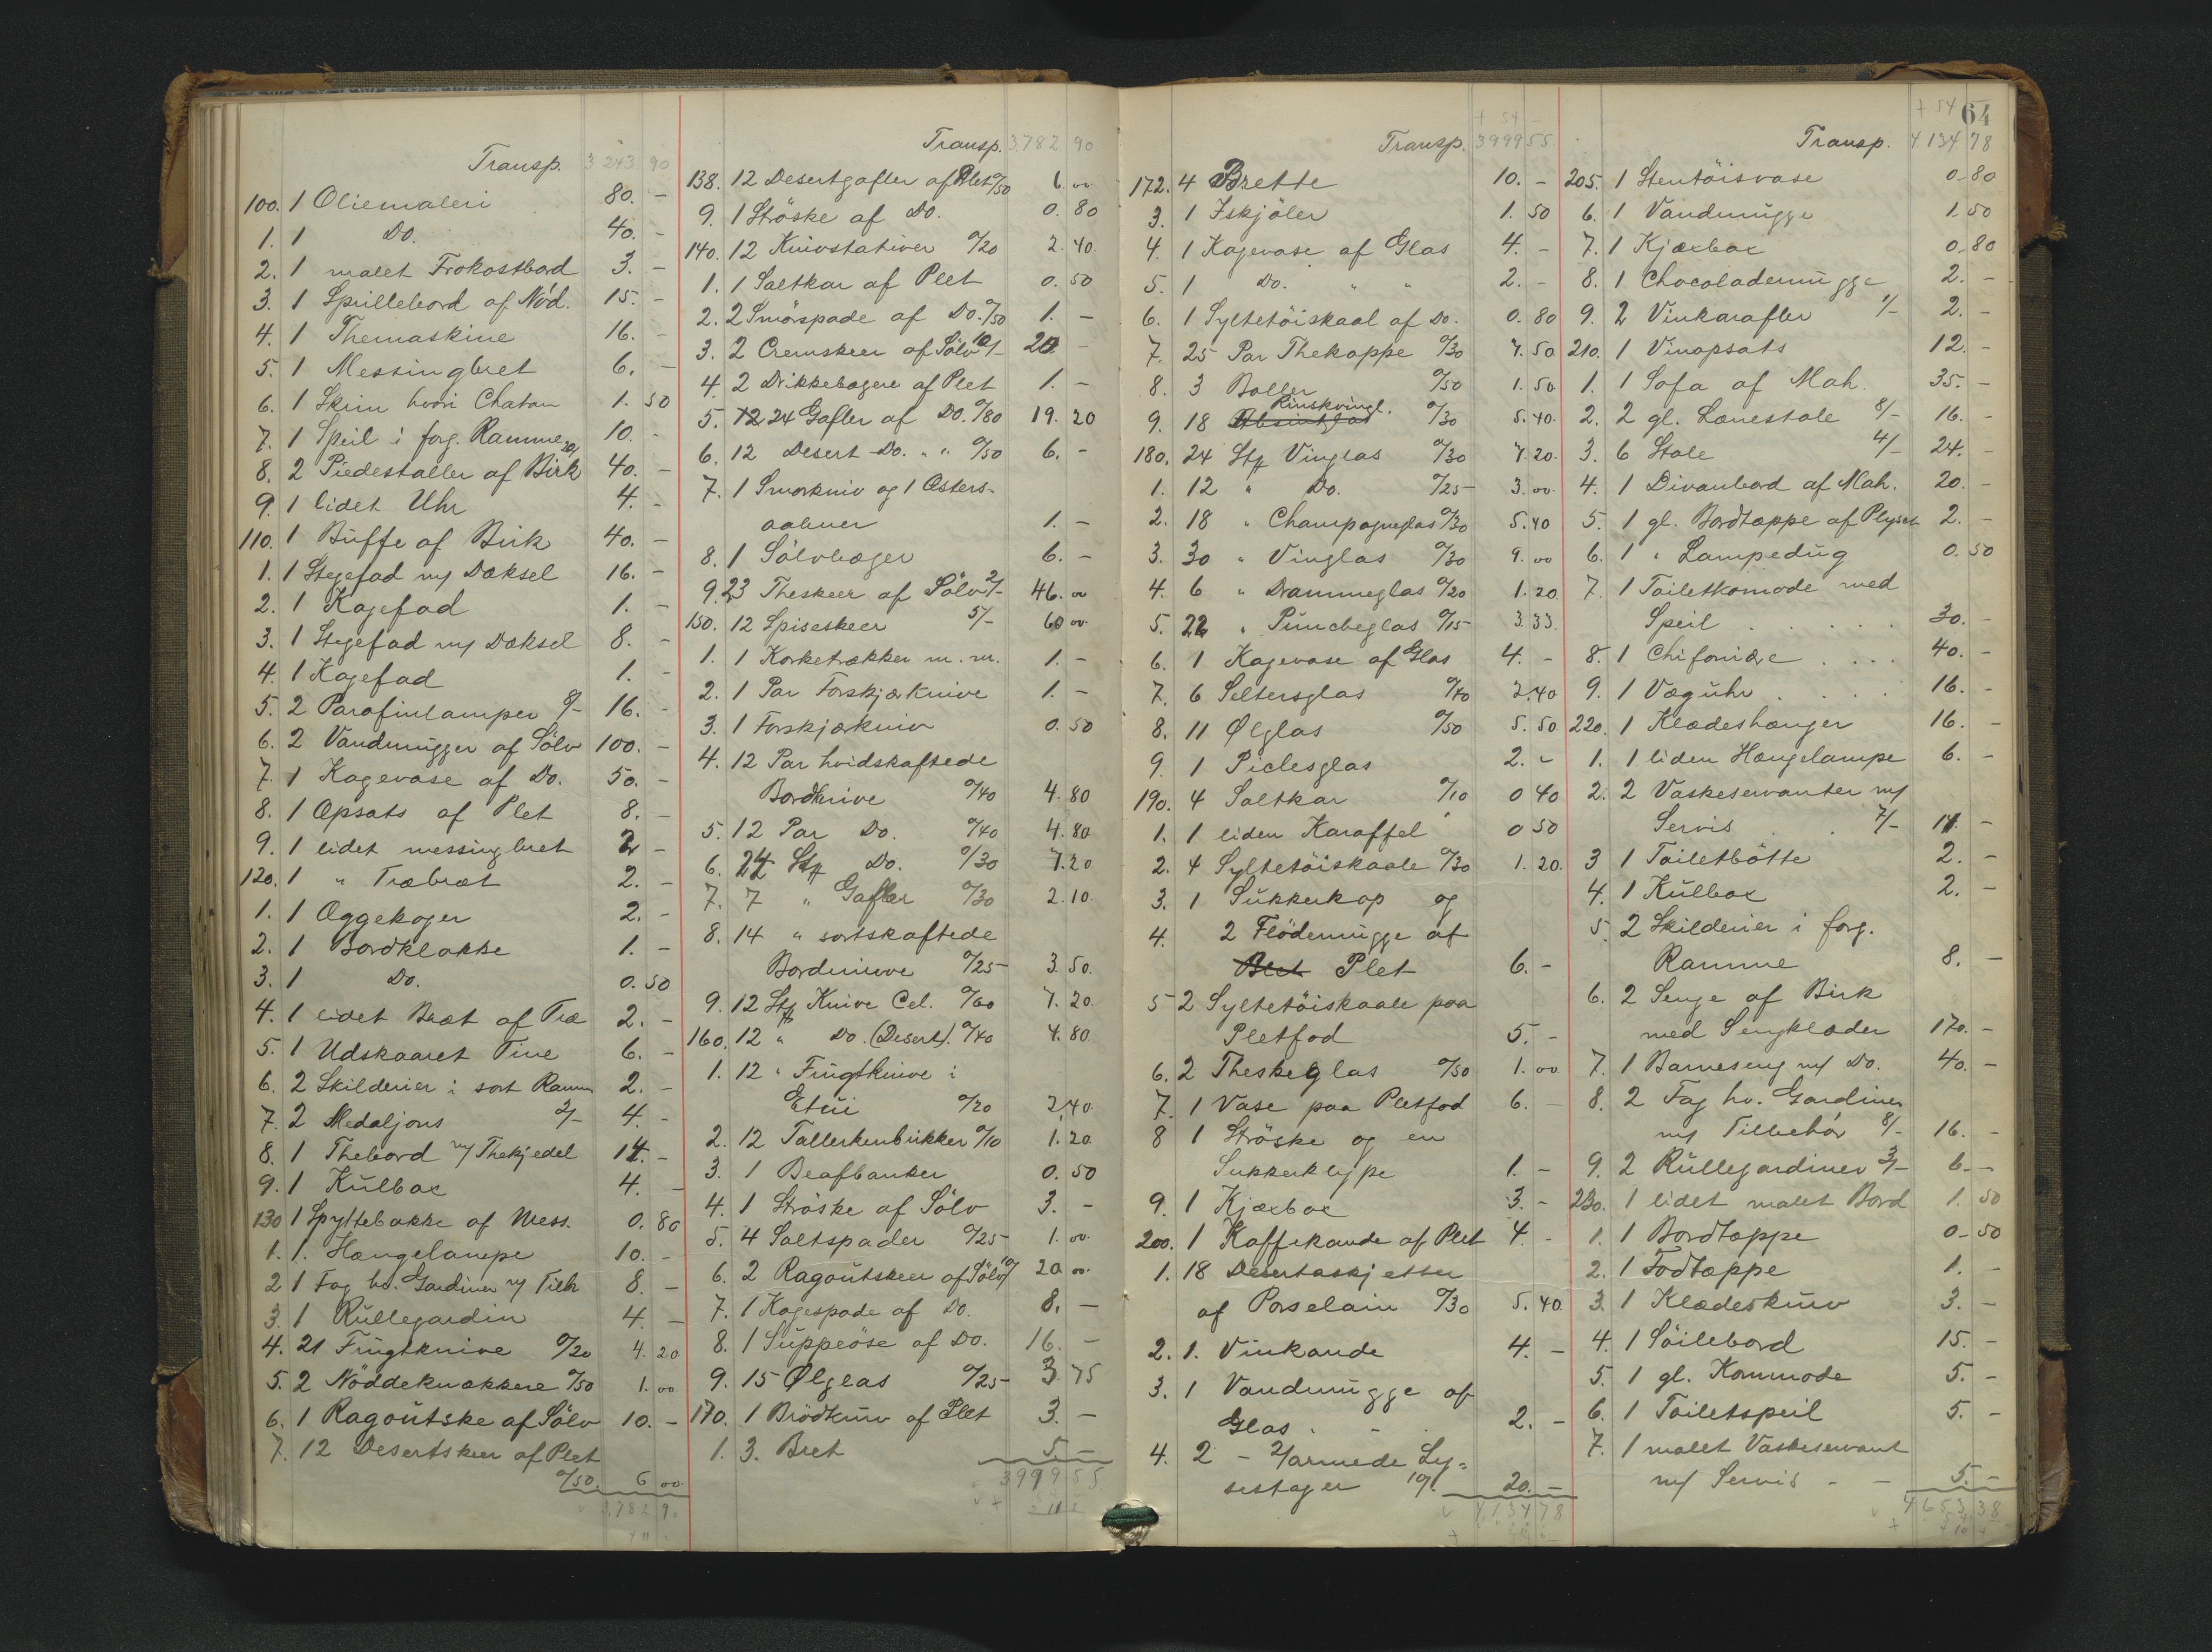 Transp. 3243 90
100. 1 Oliemaleri 80. -
1. 1 Do. 40. -
2. 1 malet Frokostbord 3. -
3. 1 Spillebord af Nød. 15. -
4. 1 Themaskine 16. -
5. 1 Messingbret 6. -
6. 1 Skrin hvori Chatou 1. 50
7. 1 Speil i forg. Ramme 10. -
8. 2 Piedestaller af Birk 20/ 40. -
9. 1 lidet Uhr 4. -
110. 1 Buffe af Birk 40. -
1. 1 Stegefad m/ Dæksel 16. -
2. 1 Kagefad 1. -
3. 1 Stegefad m/ Dæksel 8. -
4. 1 Kagefad 1. -
5. 2 Parafinlamper 8/- 16. -
6. 2 Vandmugger af Sölv 100. -
7. 1 Kagevase af Do. 50. -
8. 1 Opsats af Plet 8. -
9. 1 lidet messingbret 2 -
120. 1 " Træbræt 2. -
1. 1 Æggekoger 2. -
2. 1 Bordklokke 1. -
3. 1 Do. 0. 50
4. 1 lidet Bræt af Træ 2. -
5. 1 Udskaaret Tine 6. -
6. 2 Skilderier i sort Ramm 2. -
7. 2 Medaljons 2/- 4. -
8. 1 Thebord m/ Thekjedel 14. -
9. 1 Kulbox 4. -
130 1 Spyttebakke af Mess. 0. 80
1. 1. Hængelampe 10. -
2 1 Fag hv. Gardiner m/ Tilb 8. -
3. 1 Rullegardin 4. -
4. 21 Frugtknive 0/20 4. 20
5. 2 Nöddeknækkere 0/50 1. 00
6. 1 Ragoutske af Sölv 10. -
7. 12 Desertskeer af Plet
0/50. 6 00
3,782 9.
Transp. 3782 90
138. 12 Desertgafler af Plet 0/50 6. 00
9. 1 Ströske af Do. 0. 80
140. 12 Knivstativer 0/20 2. 40.
1. 1 Saltkar af Plet 0. 50
2. 2 Smörspade af Do. 0/50 1. -
3. 2 Cremskeer af Sölv 10/- 20 -
4. 2 Drikkebægere af Plet 1. -
5. 24 Gafler af Do. 0/80 19. 20
6. 12 Desert Do. " " 0/50 6. -
7. 1 Smörkniv og 1 Østers-
aabner 1. -
8. 1 Sölvbæger 6. -
9. 23 Theskeer af Sölv 2/- 46. 00
150. 12 Spiseskeer 5/- 60 00
1. 1 Korketrækker m. m. 1. -
2. 1 Par Forskjærknive 1. -
3. 1 Forskjækniv 0. 50
4. 12 Par hvidskaftede
Bordknive 0/40 4. 80
5. 12 Par Do. 0/40 4. 80
6. 24 Stk Do. 0/30 7. 20
7. 7 " Gafler 0/30 2. 10.
8. 14 " sortskaftede
Bordknive 0/25 3. 50.
9. 12 Stk Knive Cel. 0/60 7. 20.
160. 12 " Do. (Desert). 0/40 4. 80.
1. 12 " Frugtknive i
Etui 0/20 2, 40.
2. 12 Tallerkenbrikker 0/10 1. 20.
3. 1 Beafbanker 0. 50
4. 1 Ströske af Sölv 3. -
5. 4 Saltspader 0/25 1. 00.
6. 2 Ragoutskeer af Sölv 10/ 20 00.
7. 1 Kagespade af Do. 8. -
8. 1 Suppeöse af Do. 16. -
9. 15 Ølglas 0/25 3. 75
170. 1 Brödkurv af Plet 3. -
1. 3. Bret 5. -
3999 55
+ 54 -
Transp. 3999 55
172. 4 Brette 10. -
3. 1 Iskjöler 1. 50
4. 1 Kagevase af Glas 4. -
5. 1 Do. " " 2. -
6. 1 Syltetöiskaal af Do. 0. 80
7. 25 Par Thekoppe 0/30 7. 50
8. 3 Boller 0/50 1. 50
9. 18 Absintglas Rinskvingl. 0/30 5. 40.
180. 24 Stk Vinglas 0/30 7. 20.
1. 12 " Do. 0/25 3. 00.
2. 18 " Champagneglas 0/30 5. 40
3. 30 " Vinglas 0/30 9. 00
4. 6 " Drammeglas 0/20 1. 20
5. 22 " Puncheglas 0/15 3. 33.
6. 1 Kagevase af Glas 4. -
7. 6 Seltersglas 0/40 2. 40
8. 11 Ølglas 0/50 5. 50
9. 1 Piclesglas 2. -
190. 4 Saltkar 0/10 0 40
1. 1 liden Karaffel 0 50
2. 4 Syltetöiskaale 0/30 1. 20.
3. 1 Sukkerkop og
4. 2 Flödemugge af
Blet Plet 6. -
5 2 Syltetöiskaale paa
Pletfod 5. -
6. 2 Theskeglas 0/50 1. 00
7. 1 Vase paa Pletfod 6. -
8 1 Ströske og en
Sukkerklype 1. -
9. 1 Kjæxbox 3. -
200. 1 Kaffekande af Plet 4. -
1. 18 Desertaskjetter
af Porselain 0/30 5. 40.
2. 1. Vinkande 4. -
3. 1 Vandmugge af
Glas. 2. -
4. 2 - 2/armede Ly=
sestager 10/. 20. -
4,134 78
+ 54 64
Transp. 4.134 78
205. 1 Stentöisvase 0. 80
6. 1 Vandmugge 1. 50
7. 1 Kjæxbox 0. 80
8. 1 Chocolademugge 2. -
9. 2 Vinkarafler 1/- 2. -
210. 1 Vinopsats 12. -
1. 1 Sofa af Mah. 35. -
2. 2 gl. Lænestole 8/- 16. -
3. 6 Stole 4/- 24. -
4. 1 Divanbord af Mah. 20. -
5. 1 gl. Bordtæppe af Plysch 2. -
6. 1 " Lampedug 0. 50
7. 1 Toiletkomode med
Speil . . . . . 30. -
8. 1 Chifoniære . . . 40. -
9. 1 Væguhr . . . . 16. -
220. 1 Klædeshænger 16. -
1. 1 liden Hængelampe 6. -
2. 2 Vaskeservanter m/
Servis . . 7/- 14. -
3 1 Toiletbötte 2. -
4. 1 Kulbox 2. -
5. 2 Skilderier i forg.
Ramme 8. -
6. 2 Senge af Birk
med Sengklæder 170. -
7. 1 Barneseng m/ Do. 40. -
8. 2 Fag hv. Gardiner
m/ Tilbehör 8/- 16. -
9. 2 Rullegardiner 3/- 6. -
230. 1 lidet malet Bord 1. 50
1. 1 Bordtæppe 0 - 50
2. 1 Fodtæppe 1. -
3. 1 Klædeskurv 3. -
4. 1 Söilebord 15. -
5. 1 gl. Kommode 5. -
6. 1 Toiletspeil 5. -
7. 1 malet Vaskeservant
m/ Servis - - 5. -
4653 38